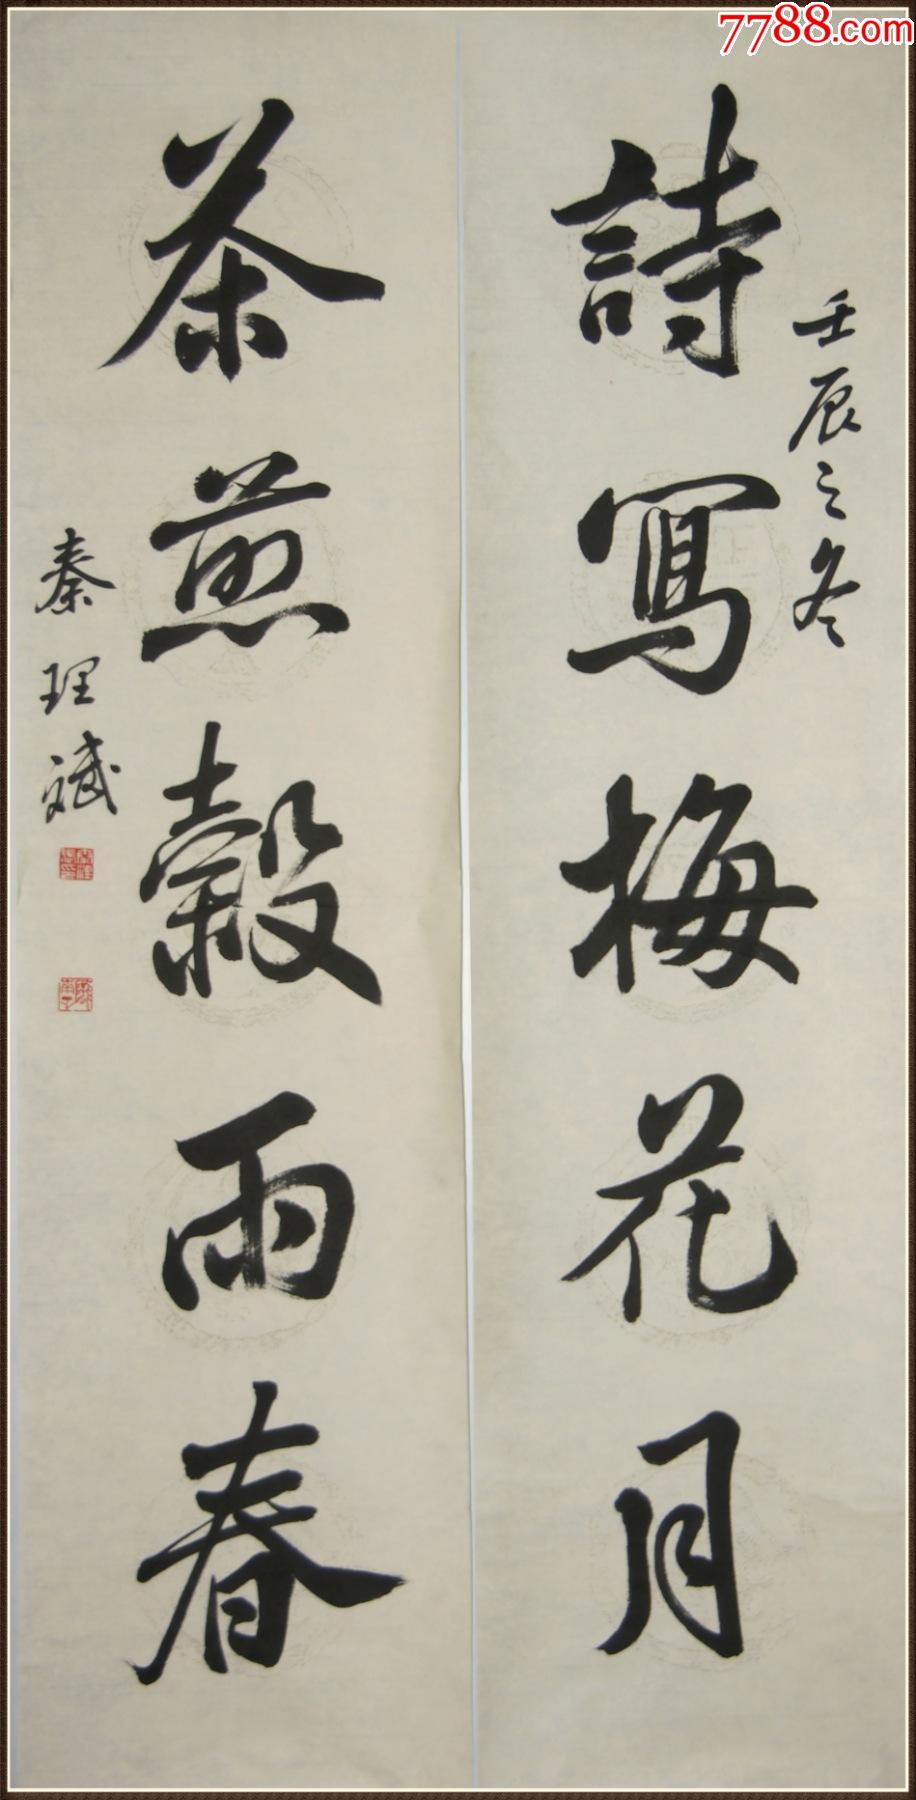 7788.com
壬辰之冬
詩寫梅花月
茶煎穀雨春
秦理斌